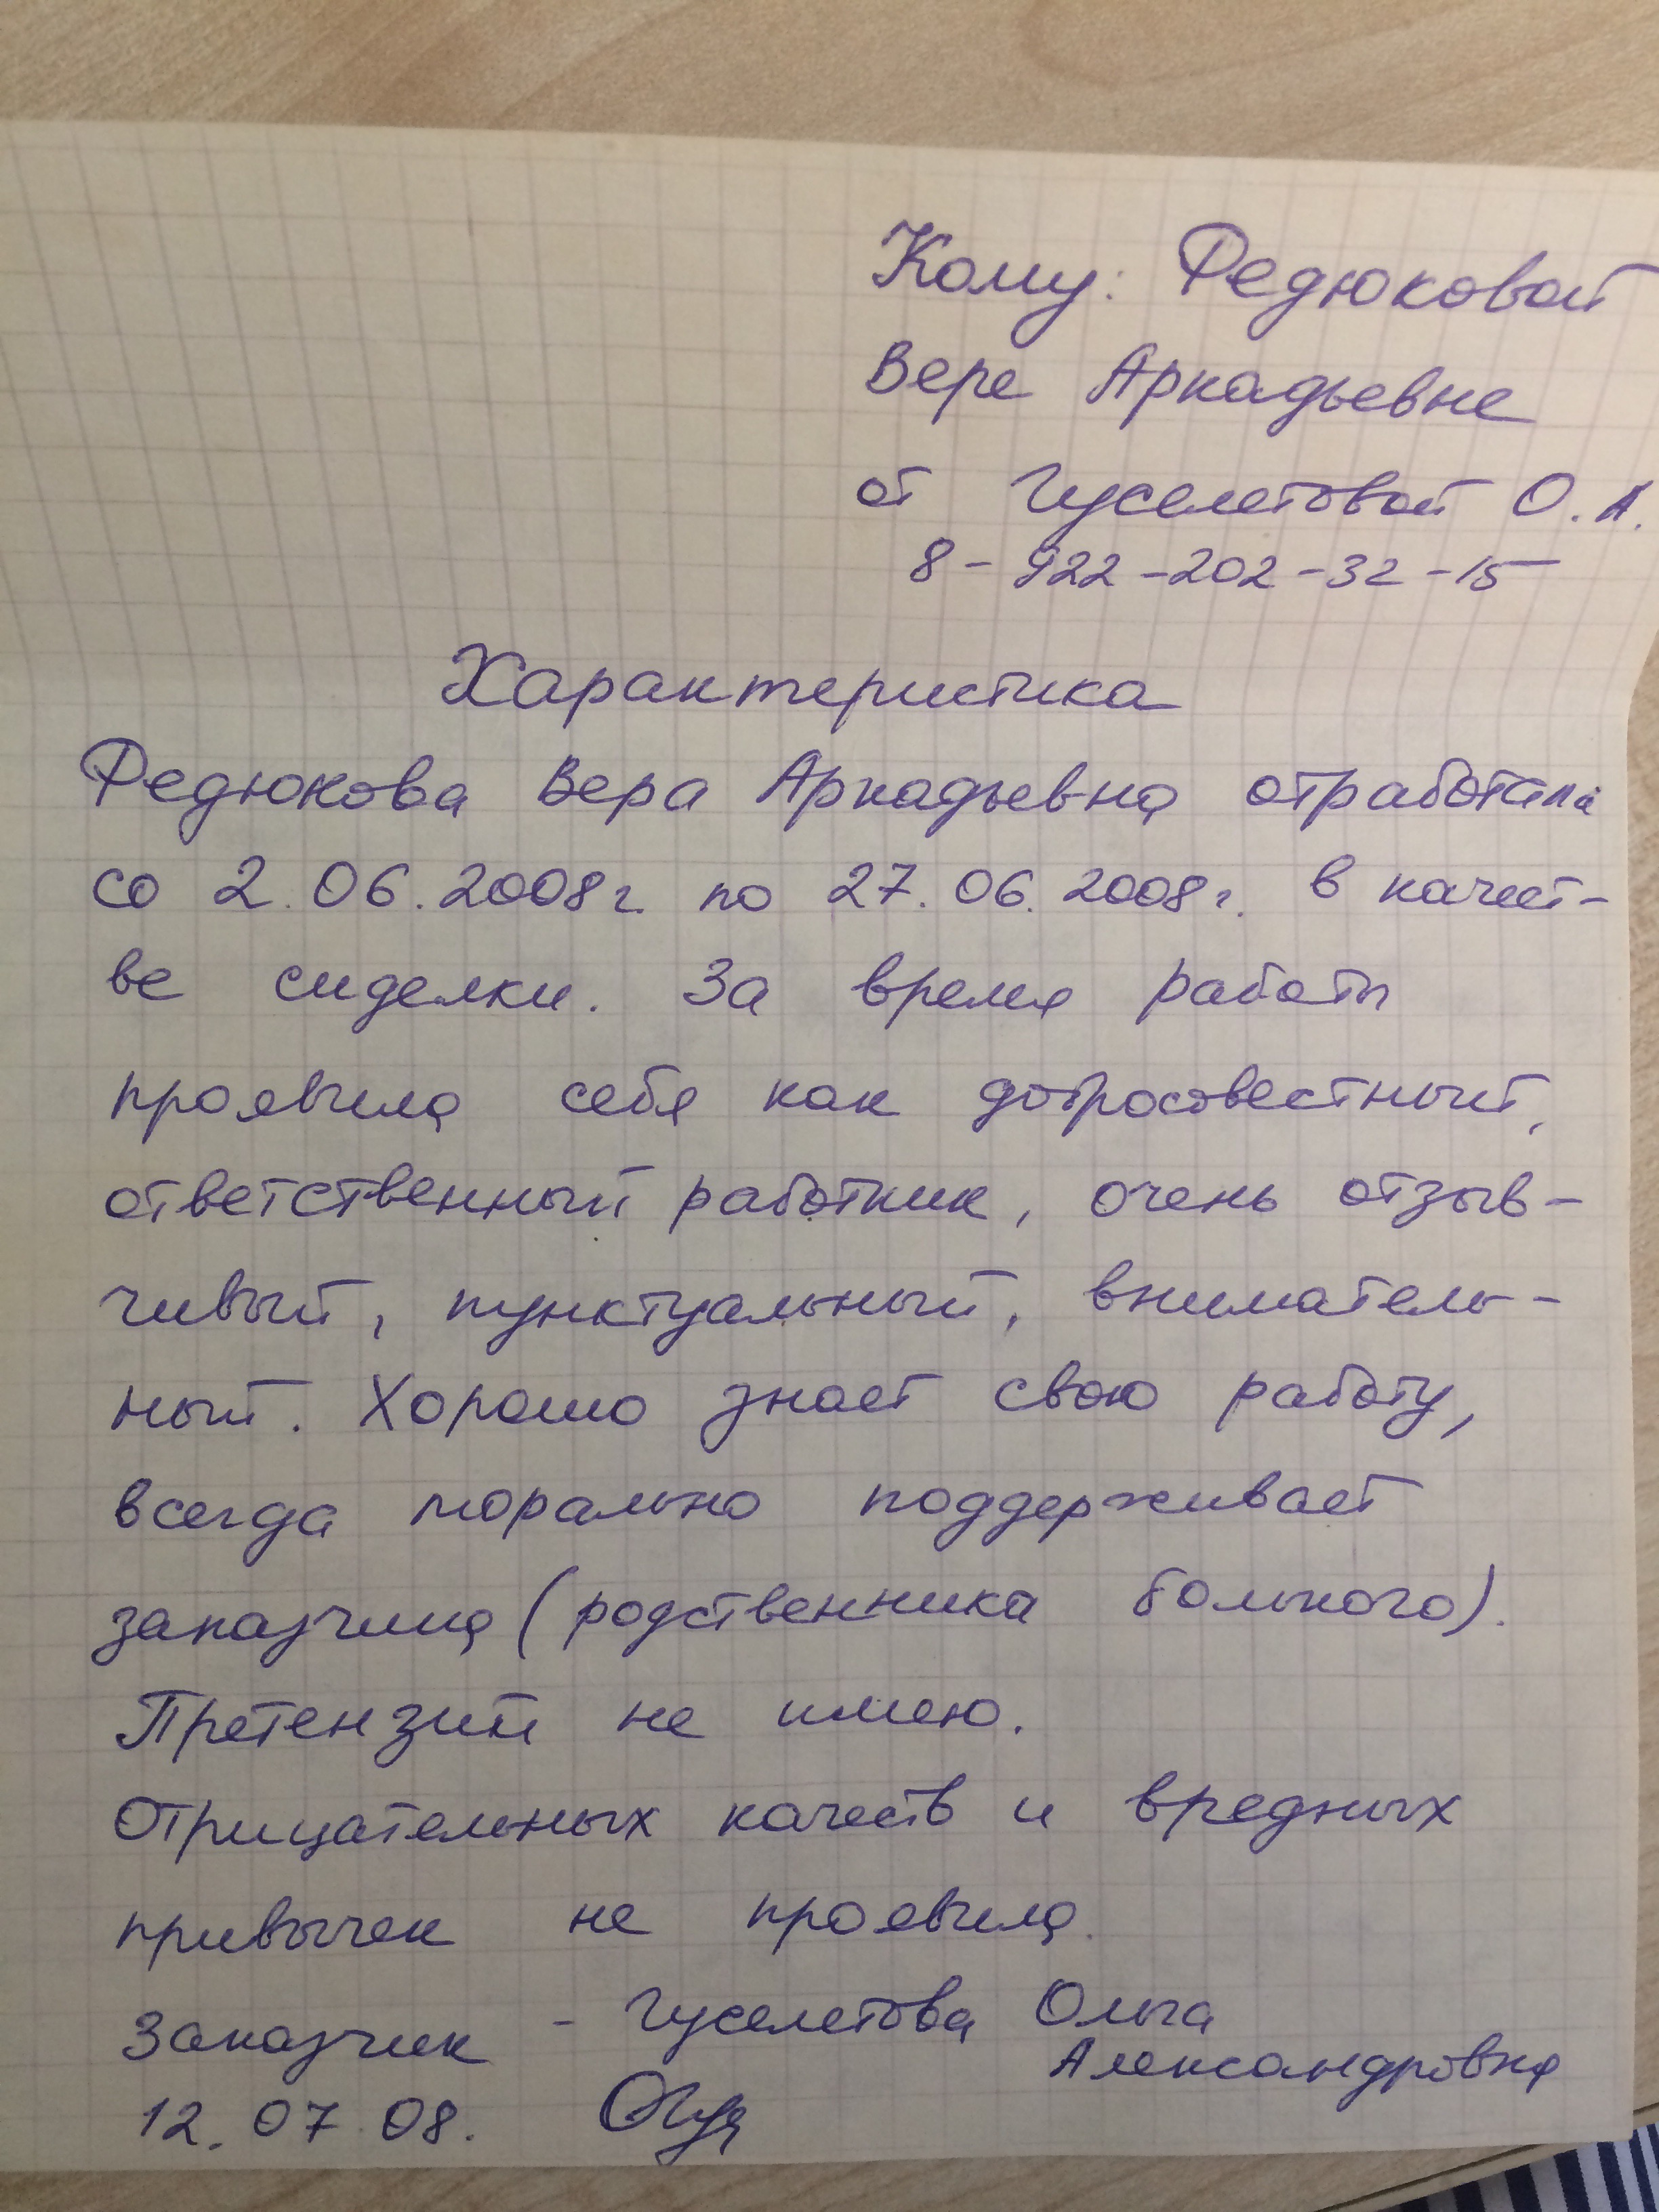 Кому: Федюковой
Вере Аркадьевне
от Гуселетовой О.А.
8-922-202-32-15
Характеристика
Федюкова Вера Аркадьевна отработала
со 2.06.2008г. по 27.06.2008г. в качест-
ве сиделки. За время работы
проявила себя как добросовестный,
ответственный работник, очень отзыв-
чивый, пунктуальный, вниматель-
ный. Хорошо знает свою работу,
всегда морально поддерживает
заказчика (родственника больного).
Претензий не имею.
Отрицательных качеств и вредных
привычек не проявила.
Заказчик - Гуселетова Ольга
Александровна
12.07.08.